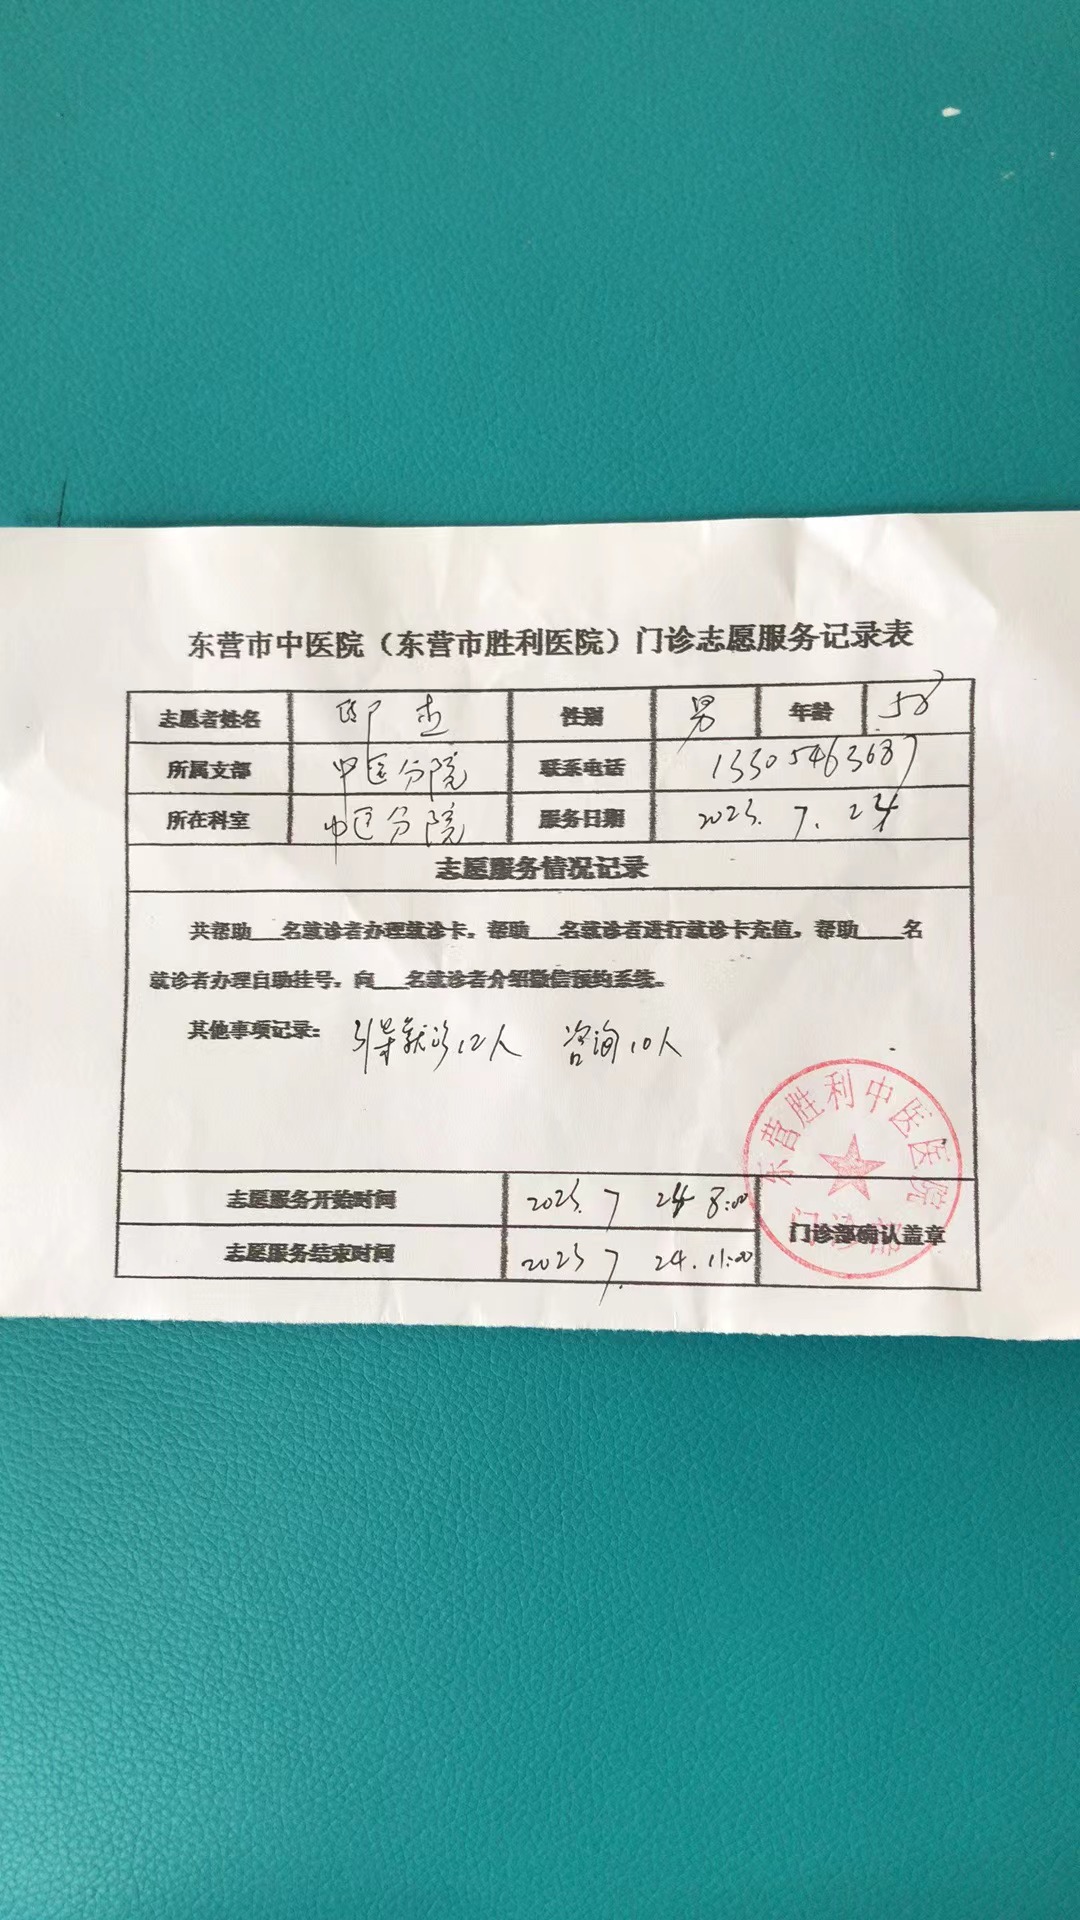 东营市中医院（东营市胜利医院）门诊志愿服务记录表
志愿者姓名 性别 男 年龄 58
所属支部 中医分院 联系电话 13305463687
所在科室 中医分院 服务日期 2023. 7. 24
志愿服务情况记录
共帮助___名就诊者办理就诊卡，帮助___名就诊者进行就诊卡充值，帮助____名
就诊者办理自助挂号，向___名就诊者介绍微信预约系统。
其他事项记录： 引导就诊12人 咨询10人
东营胜利中医医院
门诊部
志愿服务开始时间 2023. 7 24 8:00
门诊部确认盖章
志愿服务结束时间 2023 7. 24. 11:00